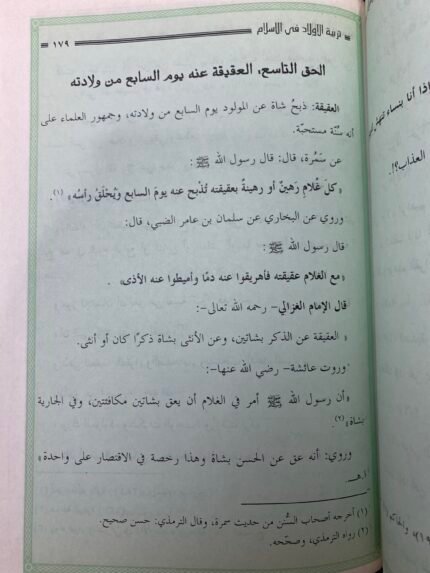 تربية الأولاد في الإسلام
١٧٩
الحق التاسع، العقيقة عنه يوم السابع من ولادته
العقيقة: ذبحُ شاة عن المولود يوم السابع من ولادته، وجمهور العلماء على
أنه سُنّة مستحبّة.
عن سَمُرة، قال: قال رسول الله ﷺ :
«كلّ غُلامٍ رَهينٌ أو رهينةٌ بعقيقته تُذبح عنه يومَ السابع ويُحْلَقُ رأسُه»(١).
وروي عن البخاري عن سلمان بن عامر الضبي، قال:
قال رسول الله ﷺ :
«مع الغلام عقيقته فأهريقوا عنه دمًا وأميطوا عنه الأذى» .
قال الإمام الغزالي- رحمه الله تعالى-:
« العقيقة عن الذكر بشاتين، وعن الأنثى بشاة ذكرًا كان أو أنثى.
وروت عائشة- رضي الله عنها-:
«أن رسول الله ﷺ أمر في الغلام أن يعق بشاتين مكافئتين، وفي الجارية
بشاة»(٢).
وروي: أنه عق عن الحسن بشاة وهذا رخصة في الاقتصار على واحدة»
ا.هـ.
(١) أخرجه أصحاب السُّنن من حديث سمرة، وقال الترمذي: حسن صحيح.
(٢) رواه الترمذي، وصحّحه.
إذا أنا بنساء
العذاب؟!.